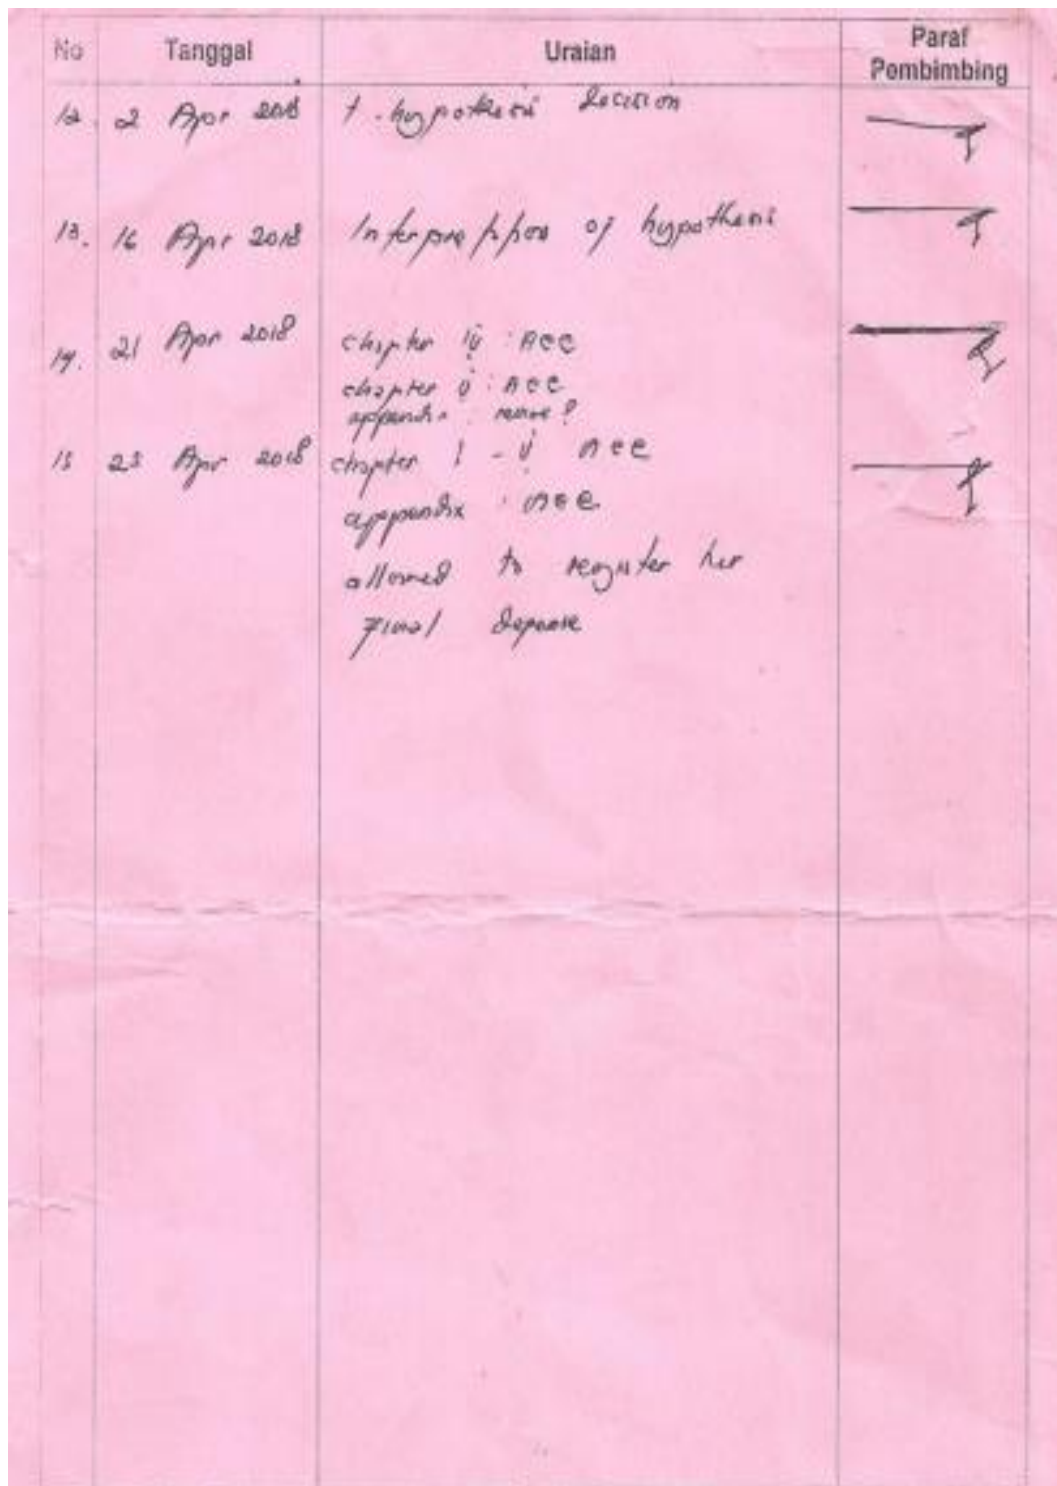 No Tanggal Uraian Paraf Pembimbing
12. 2 Apr 2018 t. hypothesis decision
13. 16 Apr 2018 Interpretation of hypothesis
14. 21 Apr 2018 chapter IV : Acc
chapter V : Acc
appendix : revise
15 23 Apr 2018 chapter I - V Acc
appendix : Acc
allowed to register her
Final defense